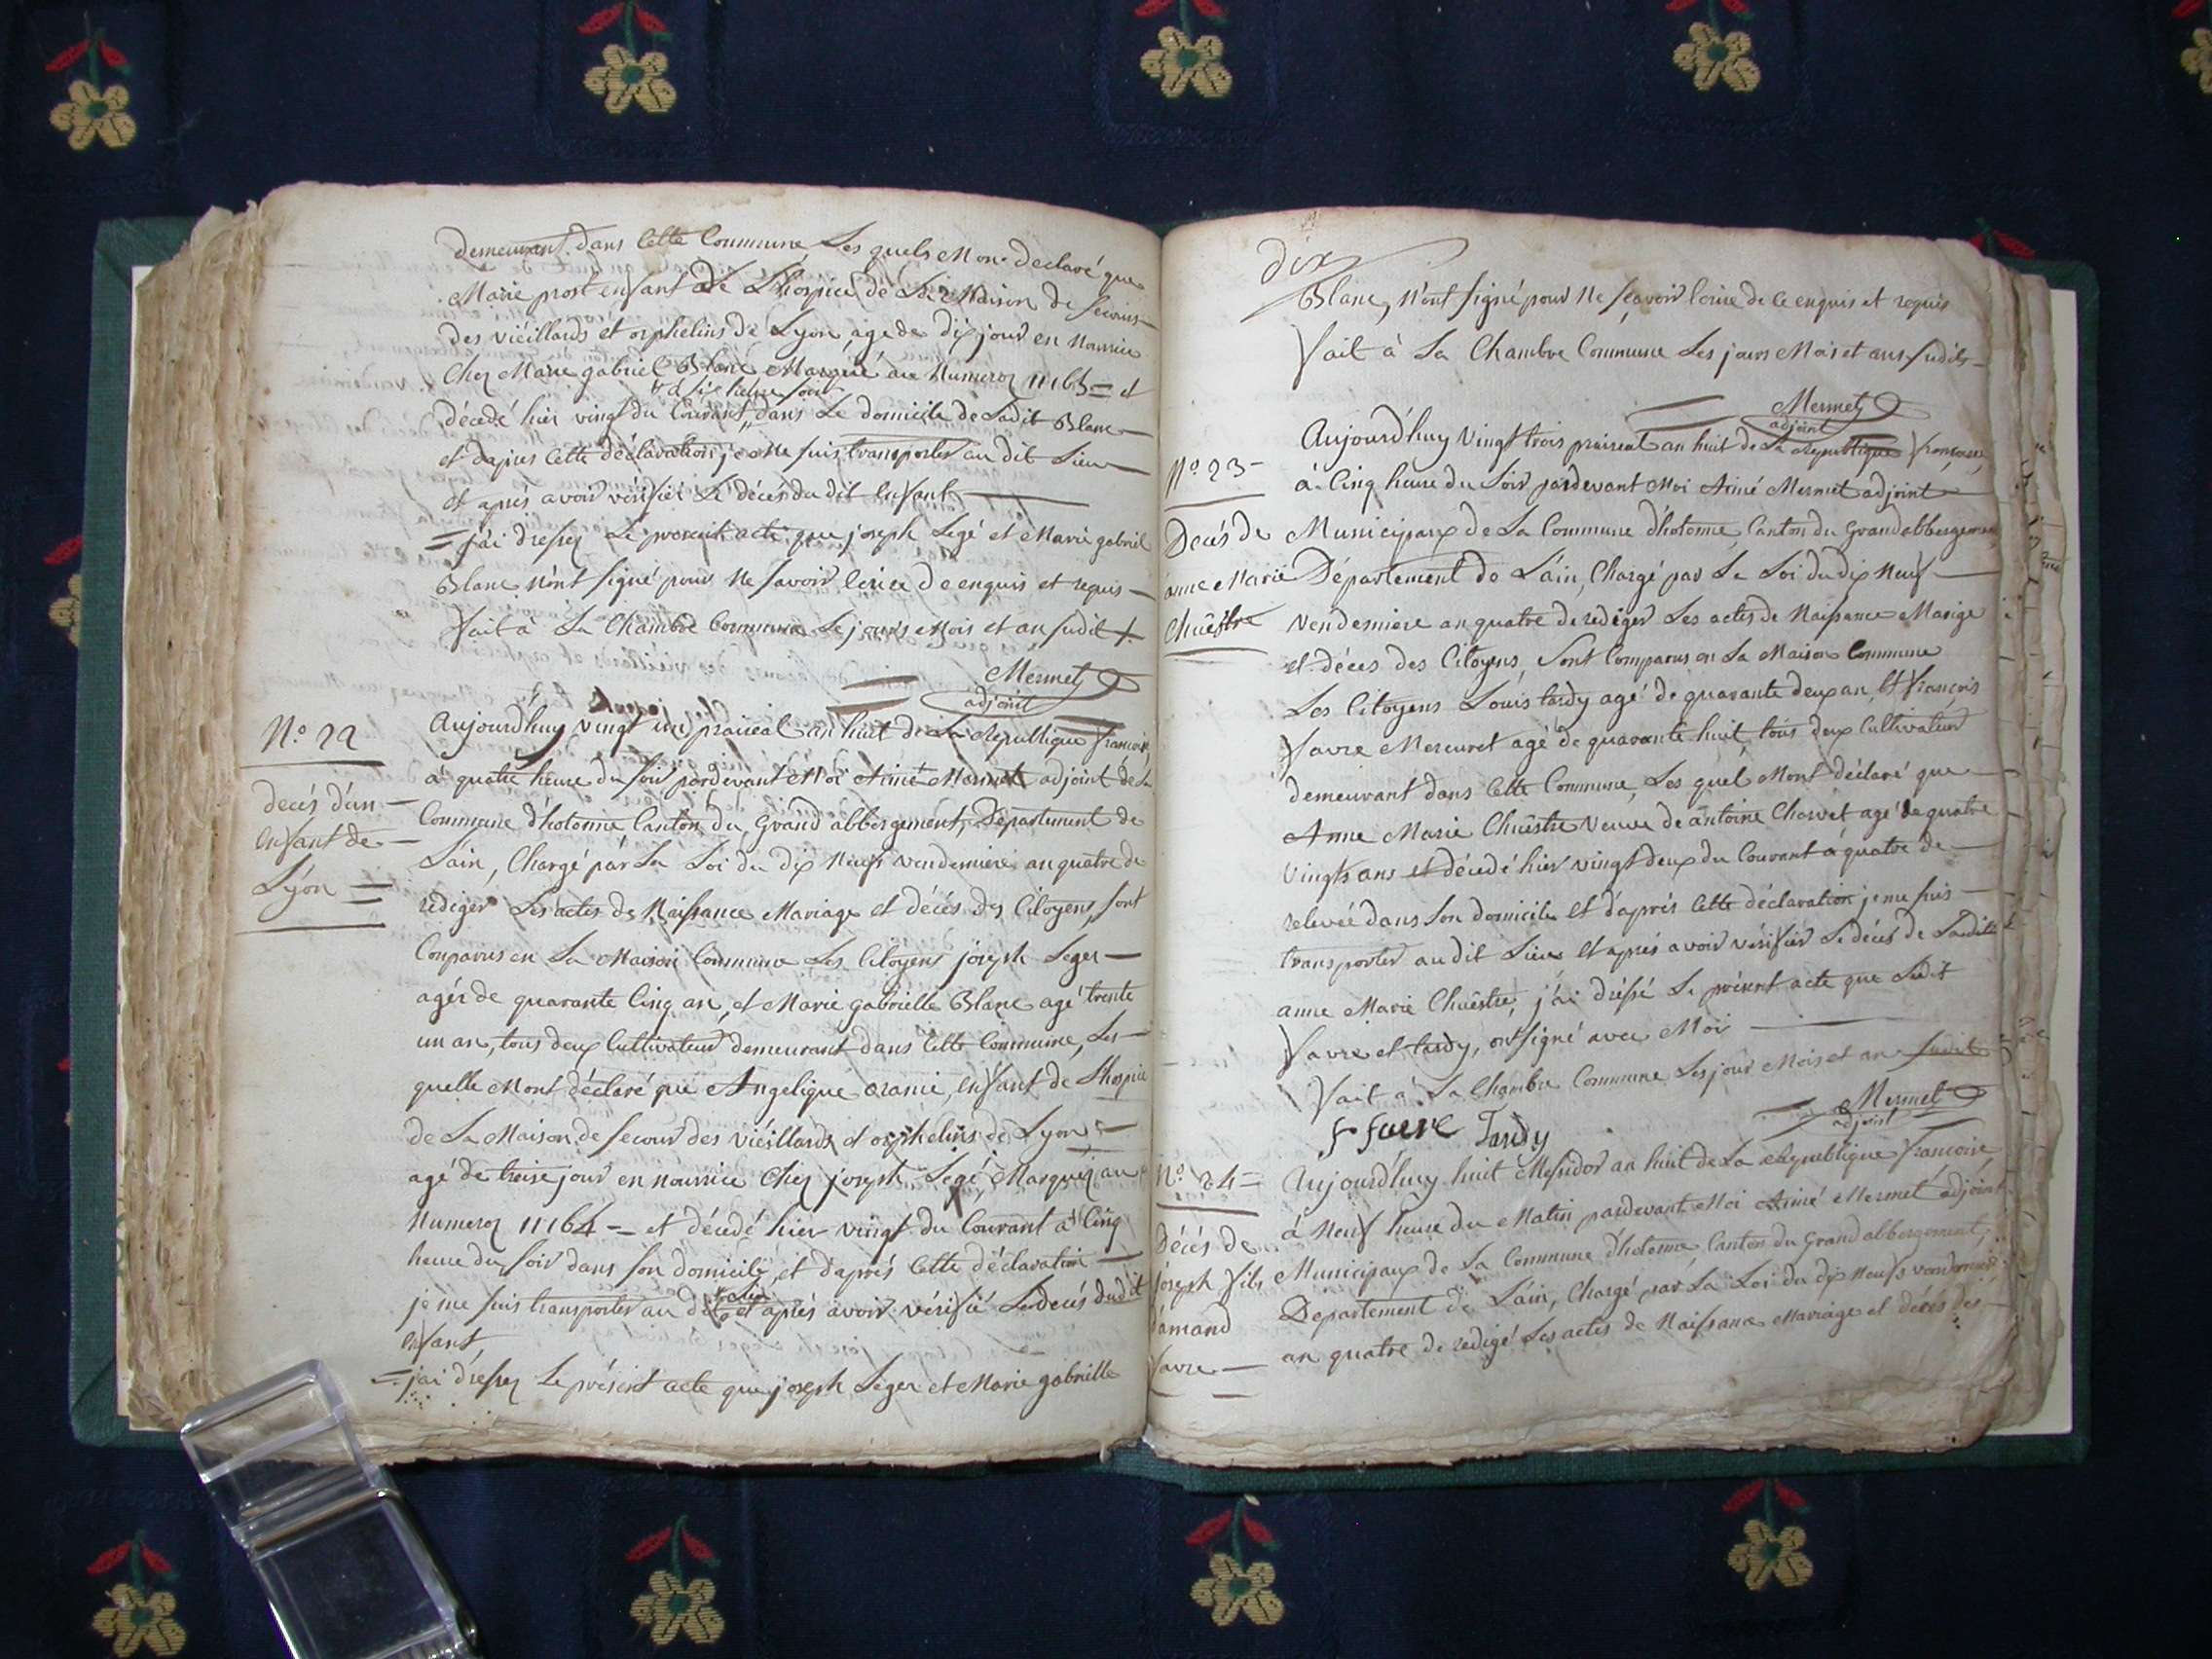 demeurant dans Cette Commune Les quels Mon declaré que
Marie prost enfant de L'hospice de La Maison de secours
des viéillards et orphelins de Lyon, agé de dix jour en Nourrice
Chez Marie gabriel Blanc Marqué au Numeroz 11165 = et
à six heure soir
décedé hier vingt du Courant dans Le domicile de Ladit Blanc
et d'apres Cette déclaration je me suis transporter au dit Lieu
et après avoir vérifiér Le décés du dit enfant
= j'ai dressez Le present acte que joseph Legé et Marie gabriel
Blanc n'ont signé pour Ne savoir lecrire de enquis et requis
fait à La Chambre Commune Le jours Mois et an susdit
Mermet
adjoint
N.o 22
decés d'un
enfant de
Lyon =
Aujourdhuy vingt un praireal an huit de La Republique francoise
à quatre heure du soir pardevant Moi Aimé Mermet adjoint de La
Commune d'hotonne Canton du Grand abbergement, Departement de
Lain, Chargé par La Loi du dix Neuf vendemiere an quatre de
rediger Les actes de Naissance Mariage et décés des Citoyens, sont
Comparus en La Maison Commune Les Citoyens joseph Leger
agér de quarante Cinq an, et Marie gabrielle Blanc agé trente
un an, tous deux Cultivateur demeurant dans Cette Commune, Les
quelle Mont déclaré que Angelique oranie, enfant de L'hospice
de La Maison de secour des viéillards et orphelins de Lyon
agé de treise jour en nourrice Chez joseph Legé, Marquéz au
Numeroz 11164 = et décedé hier vingt du Courant à Cinq
heure du soir dans son domicile, et d'aprés Cette déclaration
je me suis transporter au dit et après avoir vérifié Le decés dudit
enfant,
= j'ai dressez Le présent acte que joseph Leger et Marie gabrielle
dix
Blanc, N'ont signé pour Ne sçavoir lecrire de Ce enquis et requis
fait à La Chambre Commune Les jours Mois et ans susdits
Mermet
adjoint
N.o 23
Decés de
anne Marie
Chuêstre
Aujourd'huy vingt trois praireal an huit de La Republique françoise,
à Cinq heure du Soir pardevant Moi Aimé Mermet adjoint
Municipaux de La Commune d'hotonne, Canton du Grand abbergement
Département de L'ain, Chargé par La Loi du dix Neuf
vendemiere an quatre de rediger Les actes de Naissance Mariage
et déces des Citoyens, Sont Comparus en La Maison Commune
Les Citoyens Louis tardy agé de quarante deux an, Et françois
favre Mercuret agé de quarante huit, tous deux Cultivateur
demeurant dans Cette Commune, Les quel Mont déclaré que
Anne Marie Chuêstre Veuve de antoine Charvet agé de quatre
vingts ans et décedé hier vingt deux du Courant à quatre de
relevée dans son domicile Et d'aprés Cette déclaration je me suis
transporter au dit Lieu Et aprés avoir vérifiér Le décés de Ladite
anne Marie Chuêstre, j'ai dréssé Le présent acte que Ledit
favre et tardy, ont signé avec Moi
fait à La Chambre Commune Les jour Mois et an susdit
Mermet
adjoint
f favre Tardy
N.o 24 =
Décés de
joseph fils
d'amand
favre
Aujourd'huy huit Messidor an huit de La Republique francoise
à Neuf heure du Matin pardevant Moi Aimé Mermet adjoint
Municipaux de La Commune d'hotonne, Canton du Grand abbergement,
Departement de L'ain, Chargé par La Loi du dix Neufs vendemiere
an quatre de redigé Les actes de Naissance Mariage et décés des